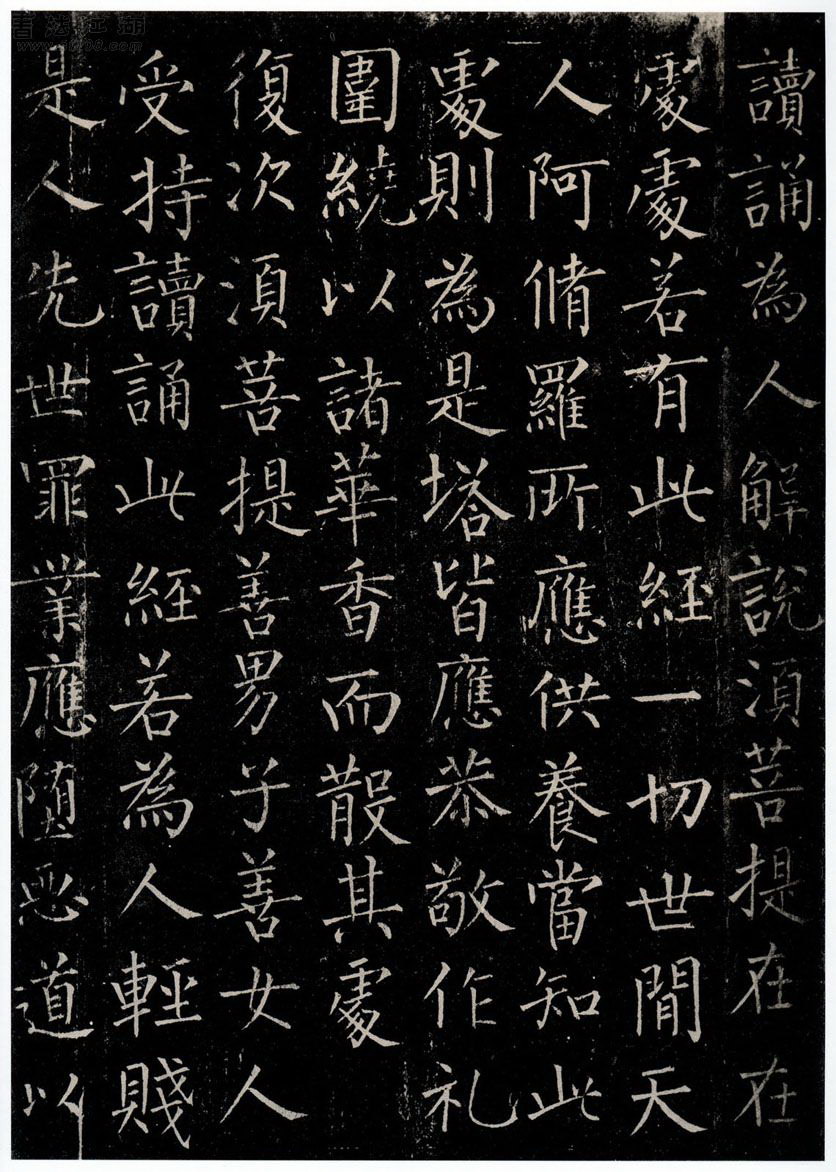 讀誦為人解說須菩提在在
處處若有此經一切世間天
人阿脩羅所應供養當知此
處則為是塔皆應恭敬作礼
圍繞以諸華香而散其處
復次須菩提善男子善女人
受持讀誦此經若為人輕賤
是人先世罪業應墮惡道以
書法江湖